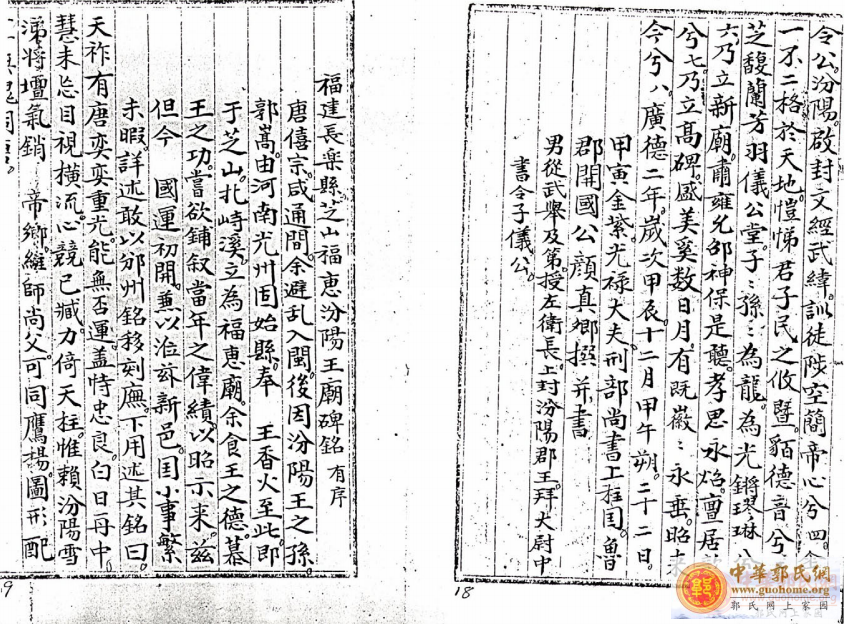 令公汾陽。啟封文經武緯。訓徒陟空簡帝心兮四
一不二格於天地。愷悌君子民之攸塈。貊德音兮
芝馥蘭芳羽儀公堂。子〻孫〻為龍。為光鏘璆琳
六乃立新廟。肅雍允卲神保是聽。孝思永焰。亶居
兮七。乃立髙碑。盛美奚数日月。有既徽〻永垂。昭
今兮八廣德二年。歲次甲辰。十二月甲午朔。二十二日。
甲寅金紫。光祿大夫。刑部尚書上柱国。魯
郡開國公顔真卿撰并書
男從武舉及第。授左衛長上封汾陽郡王。拜大尉中
書令子儀公。
18
福建長楽縣芝山福惠汾陽王廟碑銘 有序
唐僖宗。咸通間余避乱入閩。後因汾陽王之孫。
郭嵩。由河南光州固始縣。奉 王香火至此。即
于芝山。北崎溪。立為福惠廟。余食王之德。慕
王之功。嘗欲鋪叙當年之偉績。以昭示来。茲
但今 國運初開。兼以涖茲新邑。国小事繁
未暇。詳述敢以邠州銘移刻廡。下用述其銘曰。
天祚有唐奕奕重光。能無否運。盖恃忠良。白日再中。
慧未怂目視横流。心競已臧。力倚天柱。惟賴汾陽雪
涕將壇氣銷 帝鄉。維師尚父。可同鷹楊。圖形配
9
中華郭氏網
www.guohome.org
郭氏网上家园